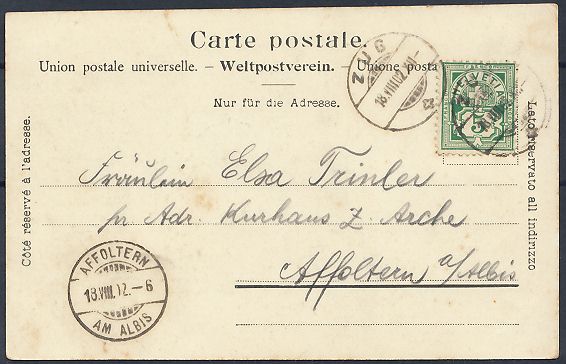 Carte postale.
Union postale universelle. — Weltpostverein. — Unione posta
Nur für die Adresse.
Côté réservé à l'adresse.
Lato riservato all indirizzo
ZUG
18.VIII.02.
HELVETIA
5
Fräulein Elsa Trinler
pr Adr. Kurhaus z. Arche
Affoltern a/Albis
AFFOLTERN
18.VIII.02.–6
AM ALBIS